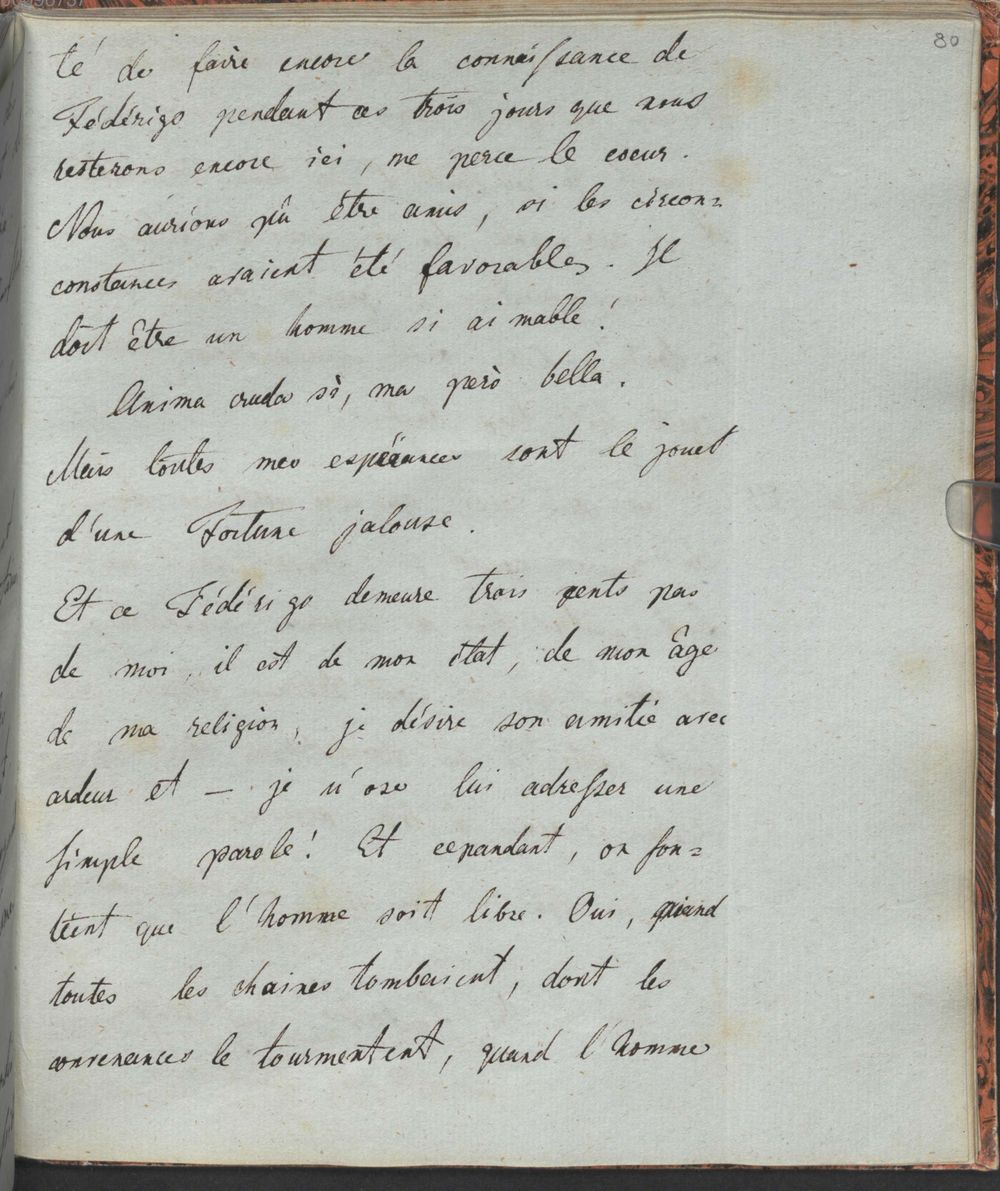 80
té de faire encore la connaiſsance de
Fédérigo pendant ces trois jours que nous
resterons encore ici, me perce le coeur.
Nous aurions pû être amis, si les circon=
constances avaient été favorables. Il
doit être un homme si aimable!
Anima cruda sì, ma però bella.
Mais toutes mes espérances sont le jouet
d'une Fortune jalouse.
Et ce Fédérigo demeure trois cents pas
de moi, il est de mon état, de mon âge
de ma religion, je désire son amitié avec
ardeur et — je n'ose lui adreſser une
ſimple parole! Et cependant, on ſou=
tient que l'homme soit libre. Oui, quand
toutes les chaines tombaient, dont les
convenances le tourmentent, quand l'homme